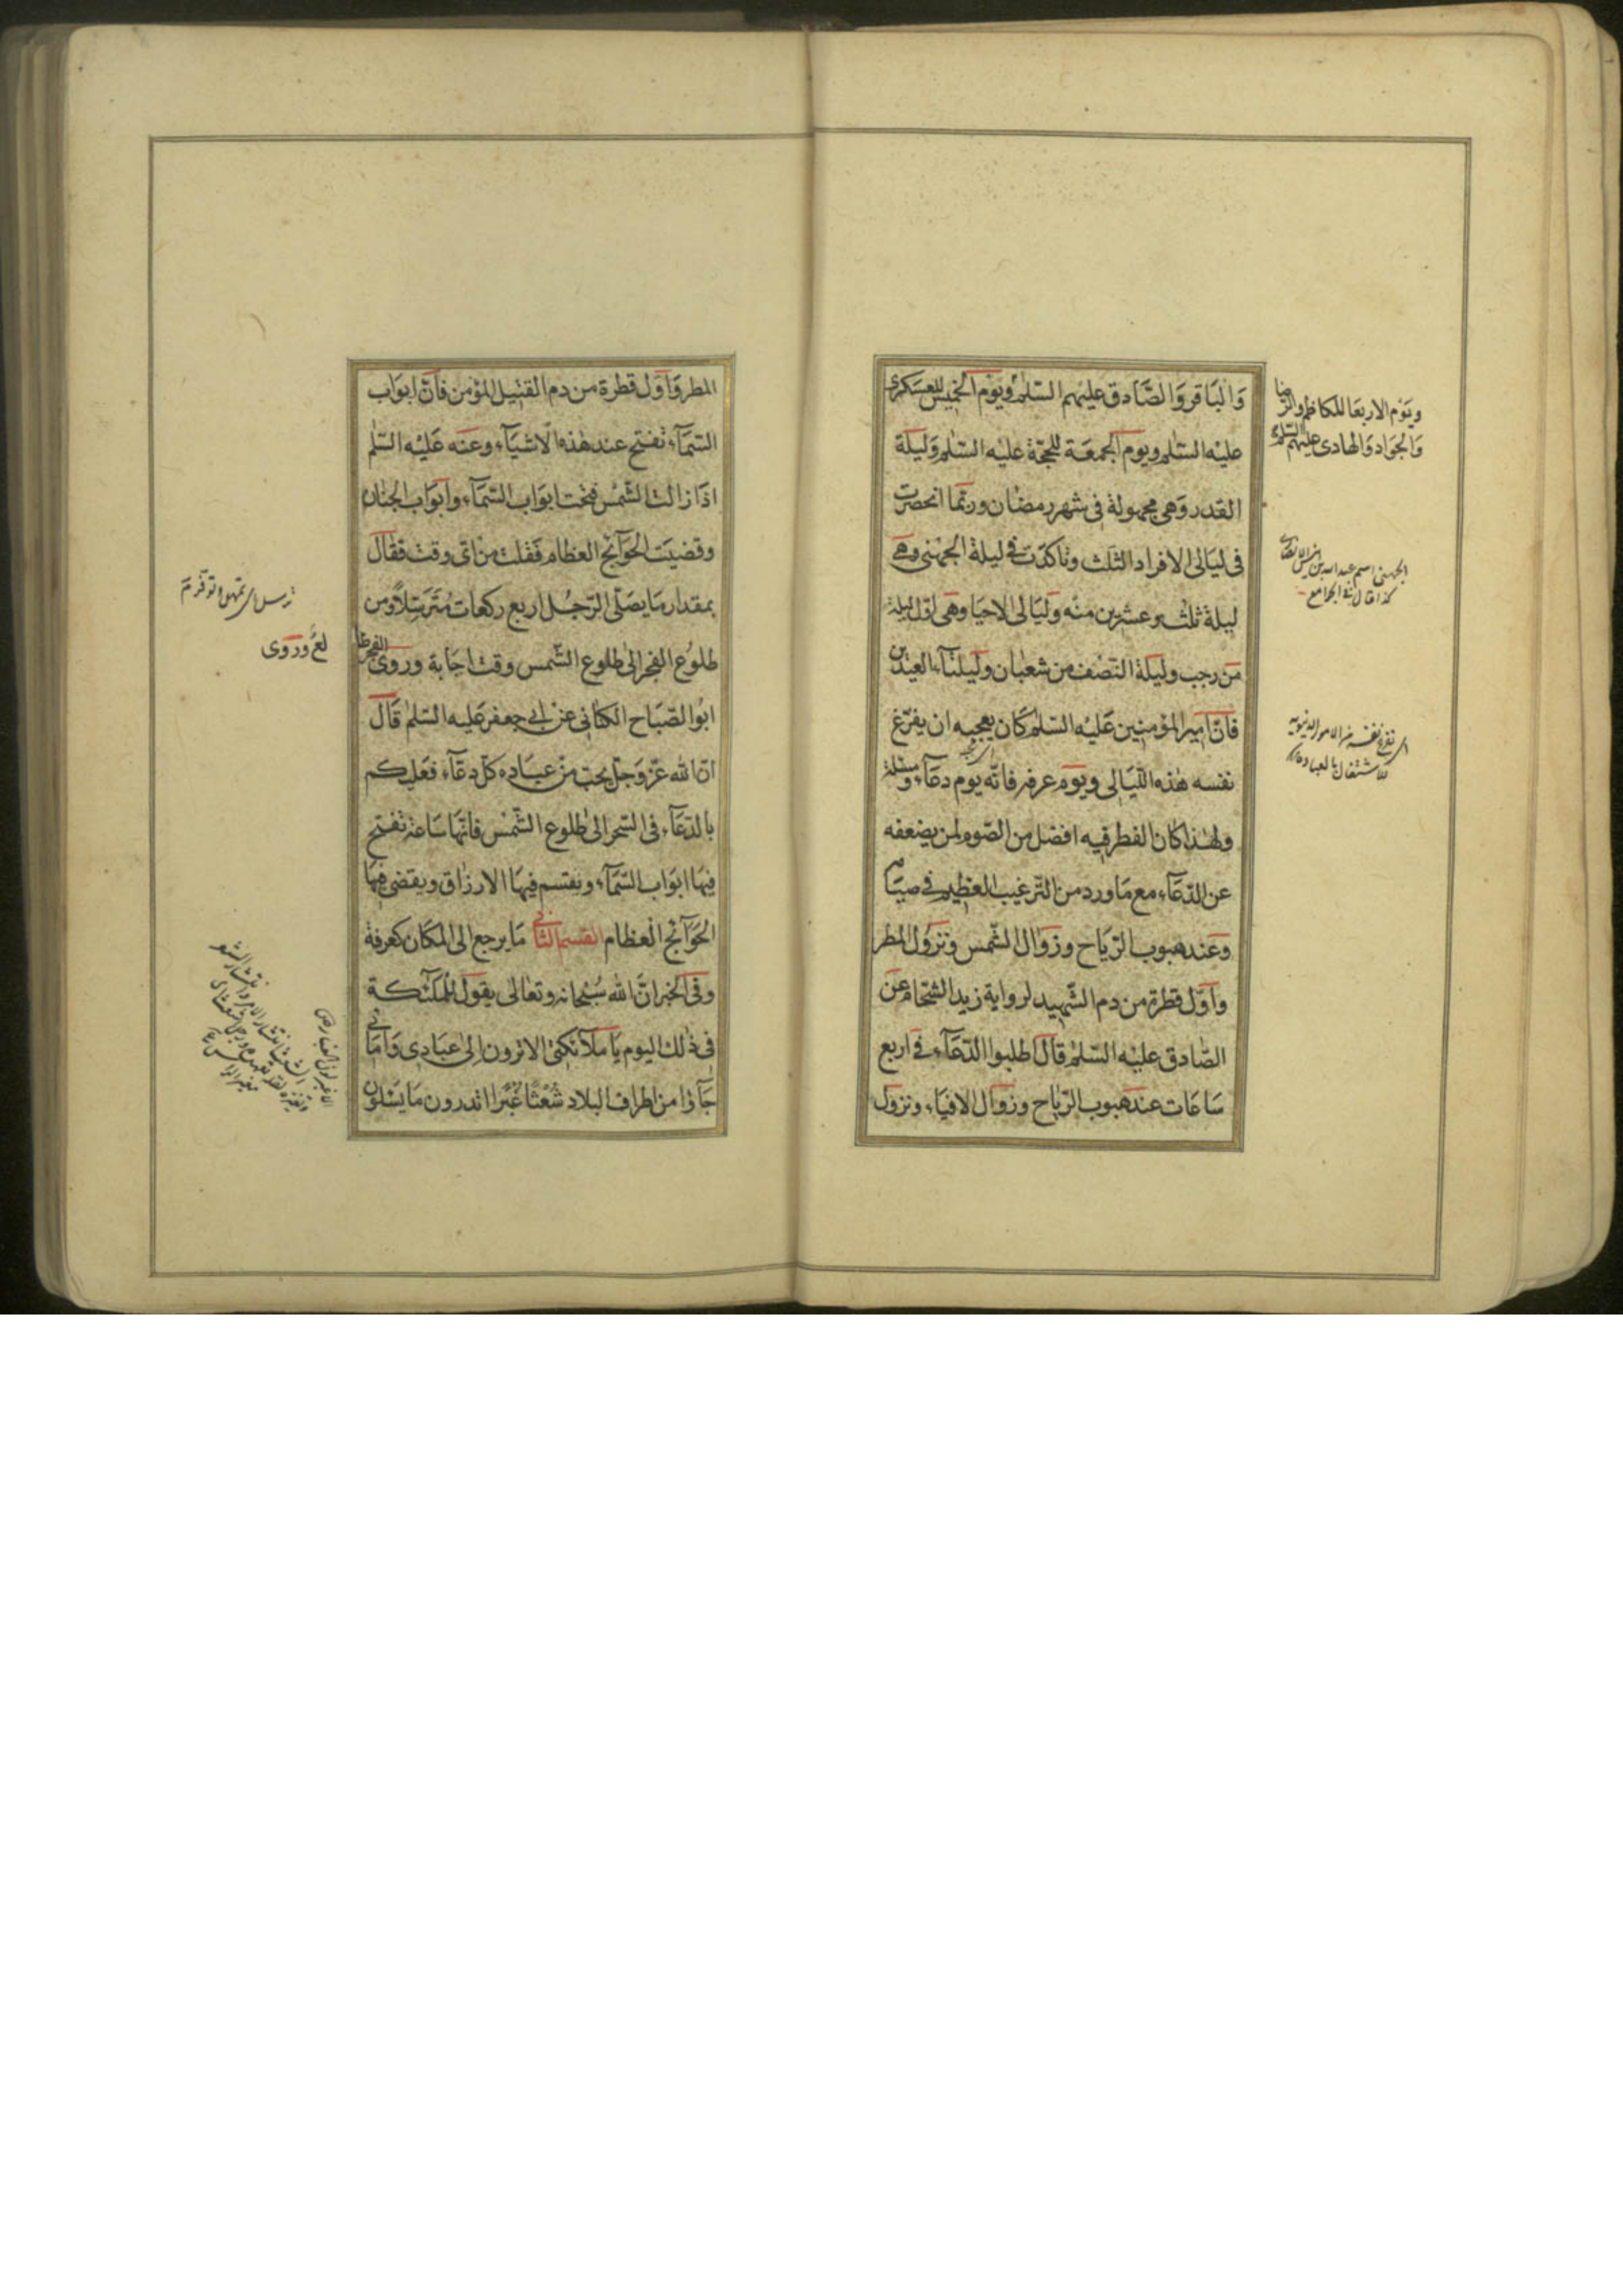 وَالبَاقر وَالصَّادق عليهم السّلم ويوم الخميس للعسكرى
عليه السّلم ويوم الجمعَة للحجّة عليه السّلم وَليلة
القدر وَهى مجهولة فى شهر رمضان وربّما انحصرت
فى ليَالى الافراد الثلث وتاكدت فى ليلة الجهنى وهى
ليلة ثلث وعشرين منه وليَالى الاحيا وهى اوّل ليلة
من رجب وليلة النّصف من شعبان وليلتآ العيدين
فانّ امير المؤمنين عَليه السّلم كان يعجبه ان يفرّغ
نفسه هذه اللّيَالى ويوم عرفه فانّه يوم دعآء ومسئلة
ولهذا كان الفطر فيه افضل من الصّوم لمن يضعفه
عن الدّعآء مع مَا ورد من التّرغيب العظيم فى صيَامه
وعند هبوب الرّيَاح وزوال الشّمس ونزول المطر
وآوّل قطرة من دم الشّهيد لرواية زيد الشّحّام عن
الصّادق عليه السّلم قال اطلبوا الدّعآء فى اربع
سَاعَات عند هبوب الرّياح وزوال الافيَاء ونزول
ويَوم الاربعَا للكاظم والرّضا
وَالجوَاد وَالهادى عليهم السّلم
الجهنى اسمه عبد الله بن انيس الانصارى
كذا قال فى الجامع
اى تفرغ نفسه من الامور الدنيويه
للاشتغال بالعباده
المطر وَآوّل قطرة من دم القتيل المؤمن فانّ ابوَاب
السّمآء تفتح عند هذه الاشيآء وعنه عَليه السّلم
اذَا زالت الشّمس فتحت ابوَاب السّمآء وآبوَاب الجنان
وقضيَت الحوَآئج العظام فَقلت من اىّ وقت فقال
بمقدار مَا يصَلّى الرّجُل اربع ركعات مُترَسّلاً ومن
طلوع الفجر الى طلوع الشّمس وقت اجَابة وروى
ابُو الصّبَاح الكنانى عن ابى جعفر عَليه السّلم قَالَ
انّ الله عزّ وَجلّ يحبّ من عبَاده كلّ دعّآء فعَليكم
بالدّعَآء فى السّحر الى طلوع الشّمس فانّهَا سَاعَة تفتح
فيهَا ابوَاب السّمآء ويقتسم فيهَا الارزاق ويقضى فيها
الحَوَآئج العظام القسم الثّانى مَا يرجع الى المكَان كعرفة
وفى الخبر انّ الله سُبحانه وتعالى يقول للملئكة
فى ذلك اليوم يَا ملآئكتى الا ترون الى عبَادى وَامَائى
جَآؤا من اطراف البلاد شُعْثًا غُبْرًا اتدرون مَا يَسئلون
ترسل اى تمهل وتوقر م
لع وروى